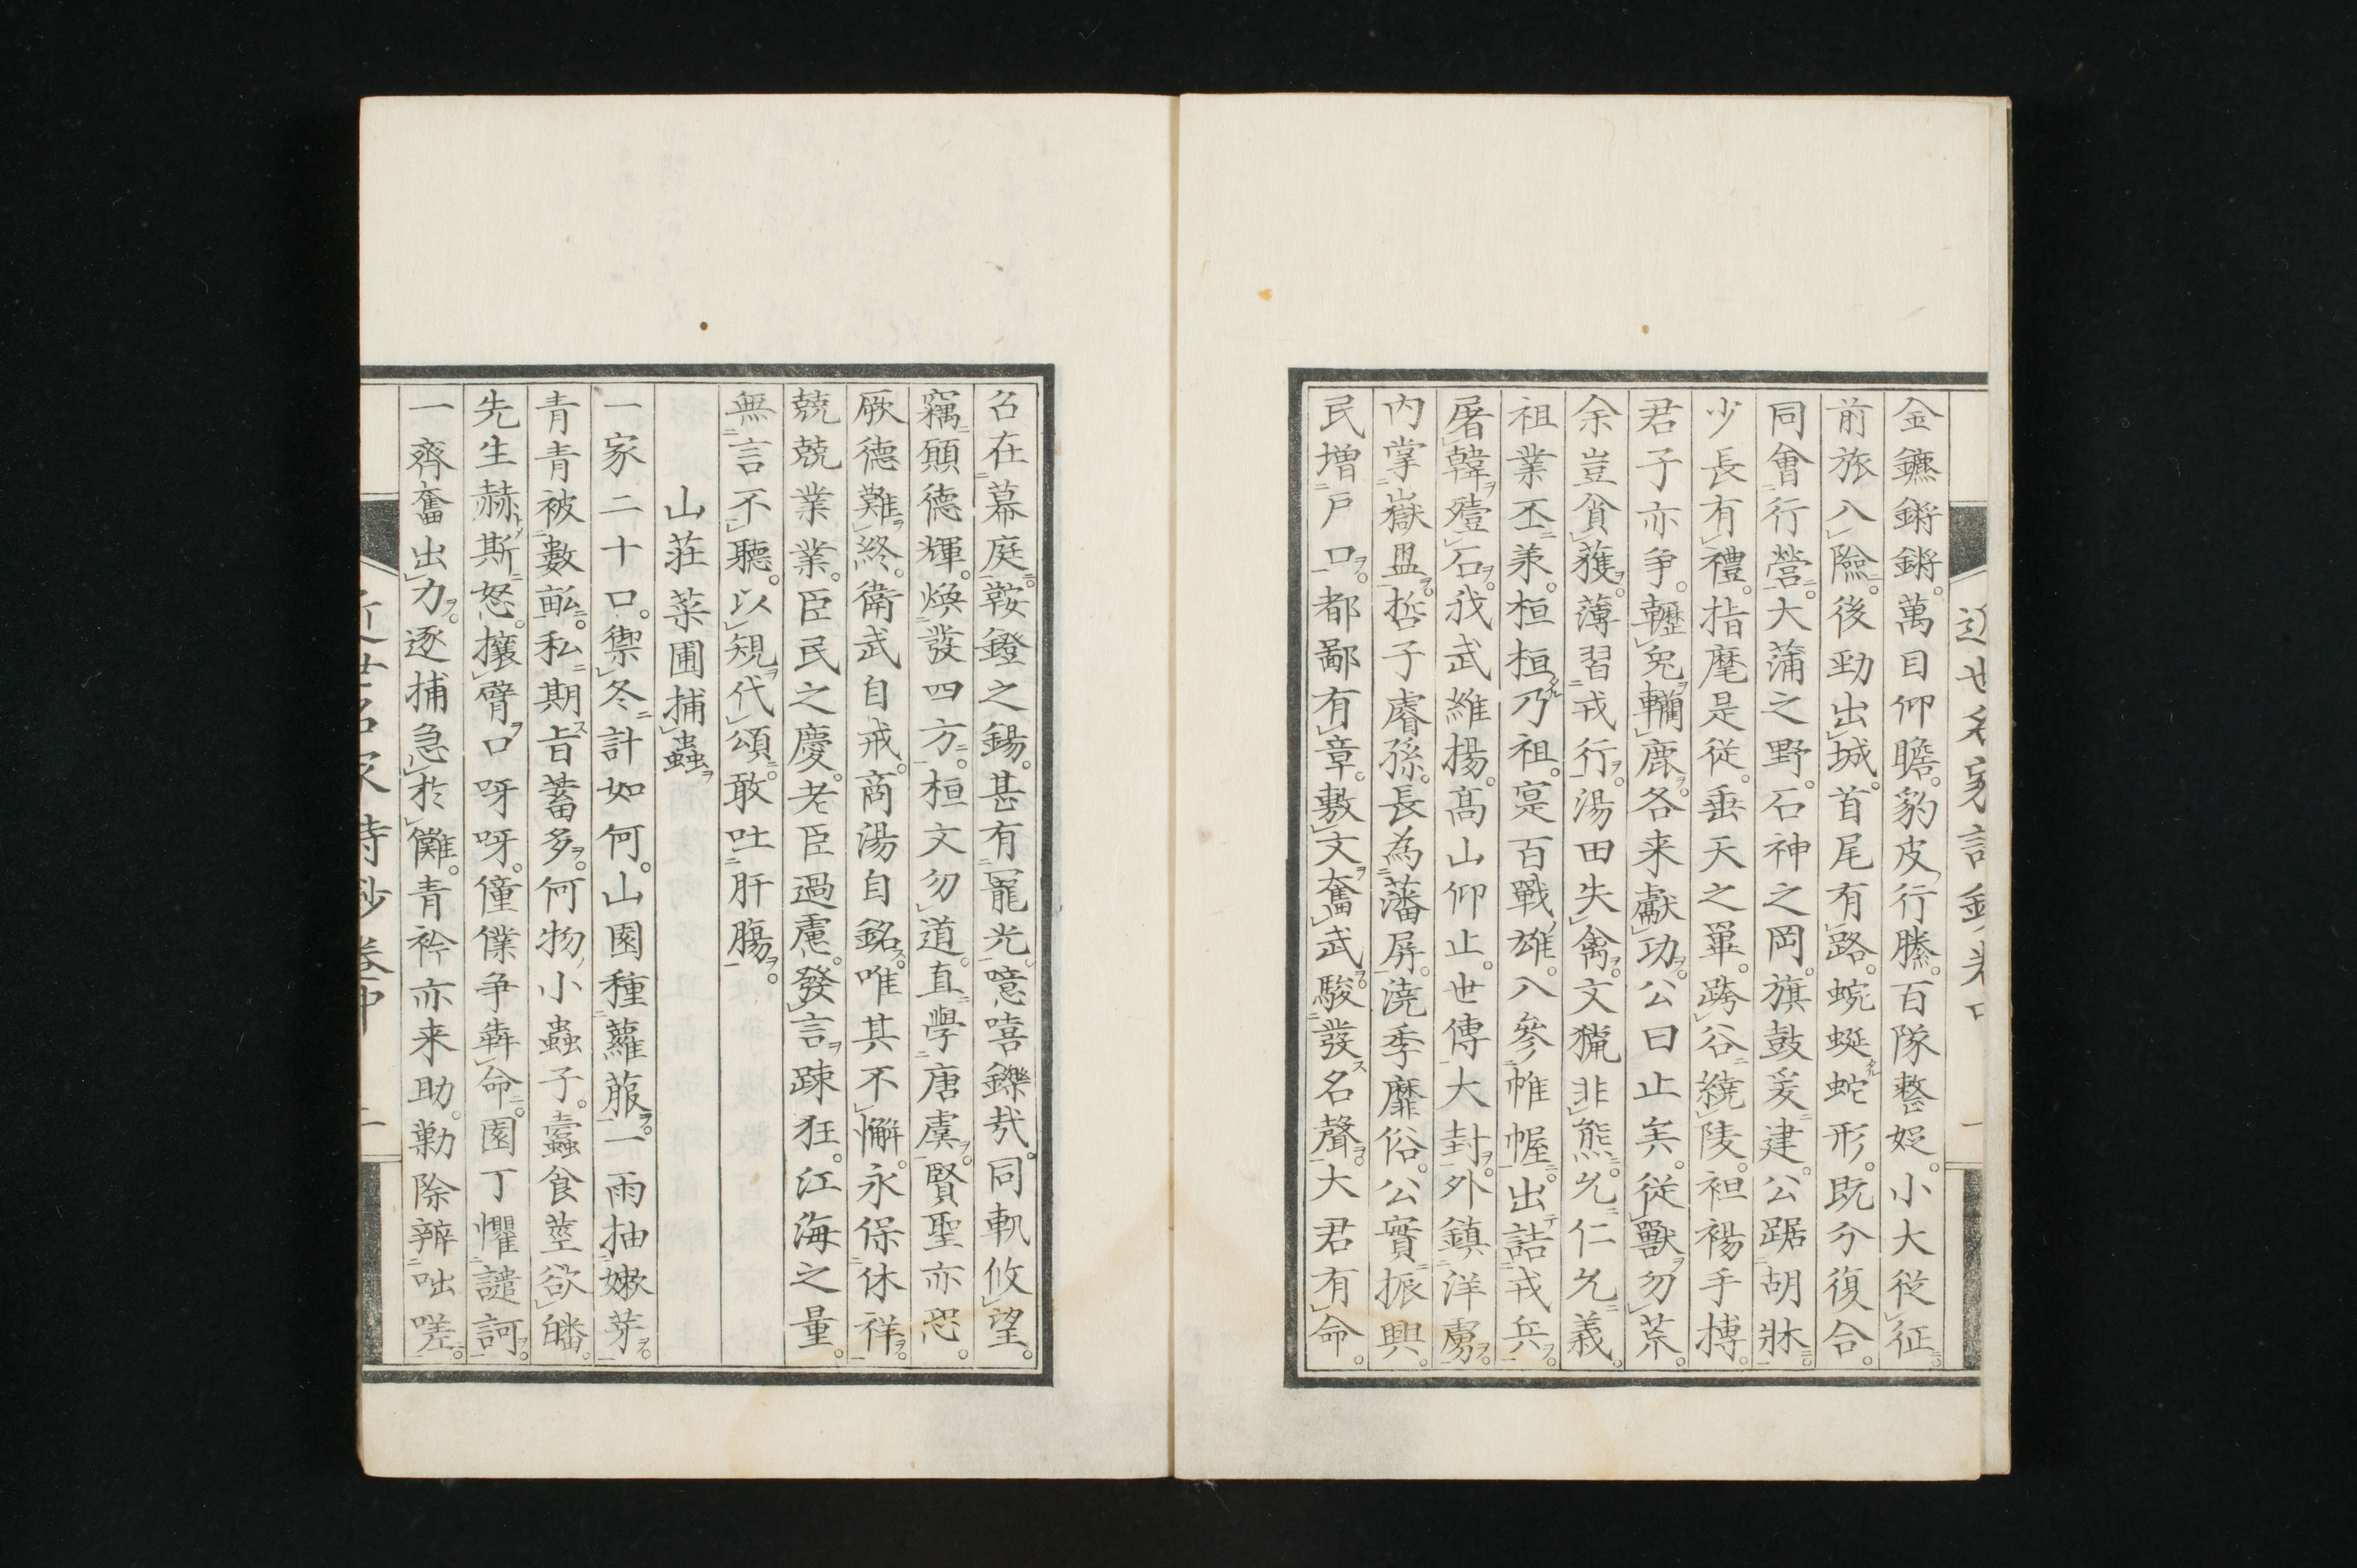 金鑣鏘鏘。萬目仰瞻。豹皮行縢。百隊整娖。小大從征。
前旅入險。後勁出城。首尾有路。蜿蜒蛇形。既分復合。
同會行營。大蒲之野。石神之岡。旗鼓爰建。公踞胡牀。
少長有禮。指麾是從。垂天之罼。跨谷繞陵。袒裼手搏。
君子亦爭。轣兎轥鹿。各来獻功。公曰止矣。從獸勿荒。
余豈貪獲。薄習戎行。湯田失禽。文獵非熊。允仁允義。
祖業丕承。桓桓乃祖。寔百戰雄。入參帷幄。出詰戎兵。
屠韓殪石。我武維揚。髙山仰止。世傳大封。外鎮洋虜。
内掌嶽盟。哲子睿孫。長為藩屏。澆季靡俗。公實振興。
民増戸口。都鄙有章。敷文奮武。駿發名聲。大君有命。
召在幕庭。鞍鐙之錫。甚有寵光。噫嘻鑠哉。同軌攸望。
竊願德輝。煥發四方。桓文勿道。直學唐虞。賢聖亦恐。
厥德難終。衛武自戒。商湯自銘。唯其不懈。永保休祥。
兢兢業業。臣民之慶。老臣過慮。發言踈狂。江海之量。
無言不聽。以規代頌。敢吐肝腸。
山莊菜圃捕蟲
一家二十口。禦冬計如何。山園種蘿菔。一雨抽嫩芽。
青青被數畝。私期旨蓄多。何物小蟲子。蠹食莖欲皤。
先生赫斯怒。攘臂口呀呀。僮僕争犇命。園丁懼譴訶。
一齊奮出力。逐捕急於儺。青衿亦来助。勦除辨咄嗟。